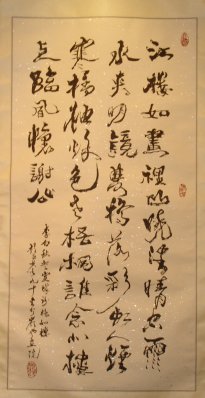 江城如畫裡山曉望晴空兩
水夾明鏡雙橋落彩虹人煙
寒橘柚秋色老梧桐誰念北樓
上臨風懷謝公
李白秋登宣城謝脁北樓